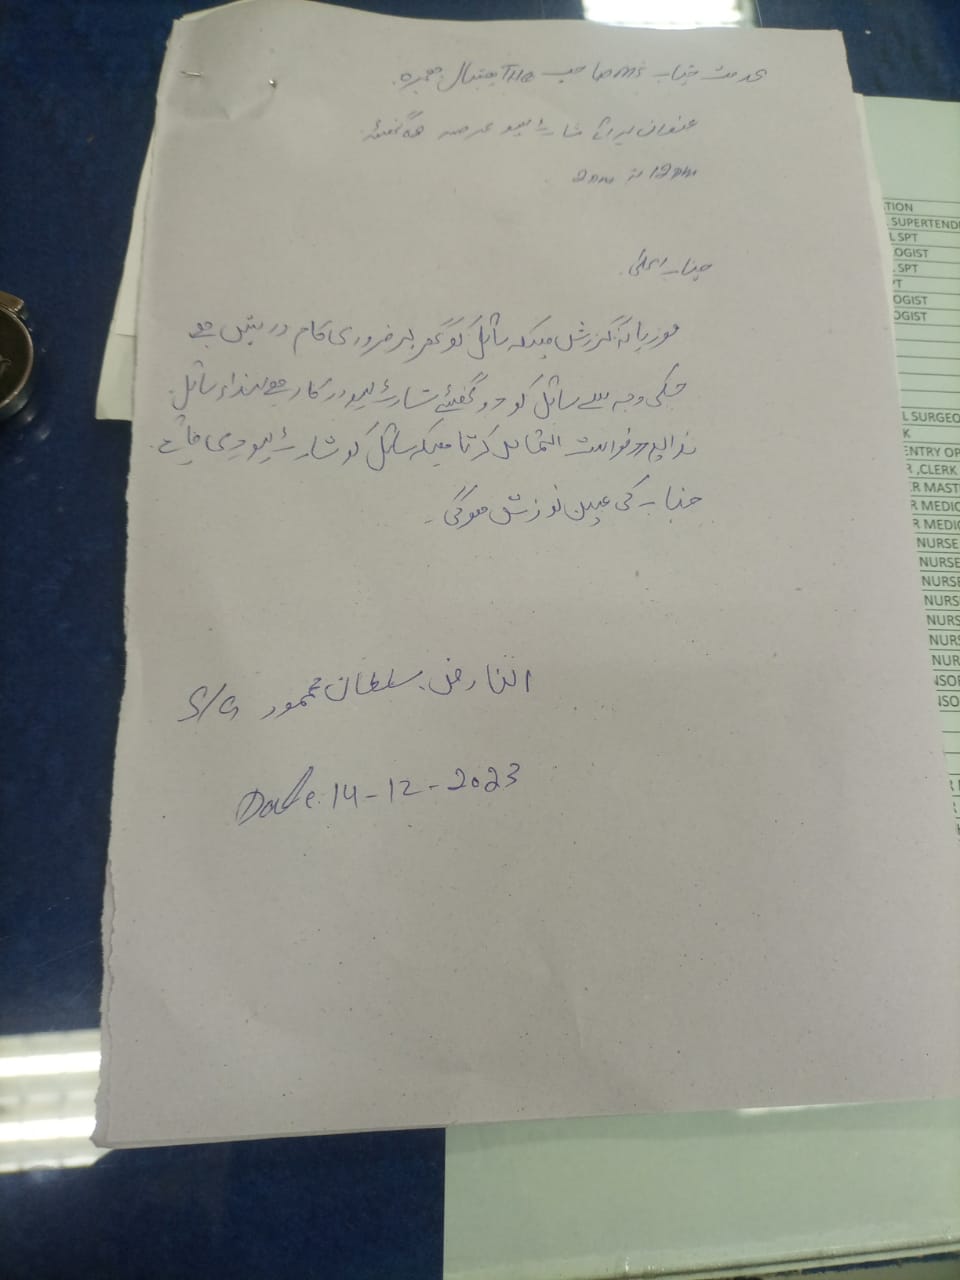 بخدمت جناب ms صاحب THQ ہسپتال
عنوان برائے شارٹ لیو عرصہ گھنٹے
2pm تا 12pm
جناب عالی
مودبانہ گزارش ہیکہ سائل کو گھر پر ضروری کام در پیش ہے
جسکی وجہ سے سائل کو دو گھنٹے شارٹ لیو درکار ہے لہذا سائل
بذریعہ درخواست التماس کرتا ہیکہ سائل کو شارٹ لیو دی جائے
جناب کی عین نوازش ہوگی۔
العارض سلطان محمود S/G
Date 14-12-2023
TION
SUPERTEND
L SPT
OGIST
SPT
PT
OGIST
OGIST
L SURGEO
K
ENTRY OP
R ,CLERK
R MAST
R MEDIC
R MEDIC
NURSE
NURSE
NURSE
NURS
NURS
NURS
NUR
NSO
NSO